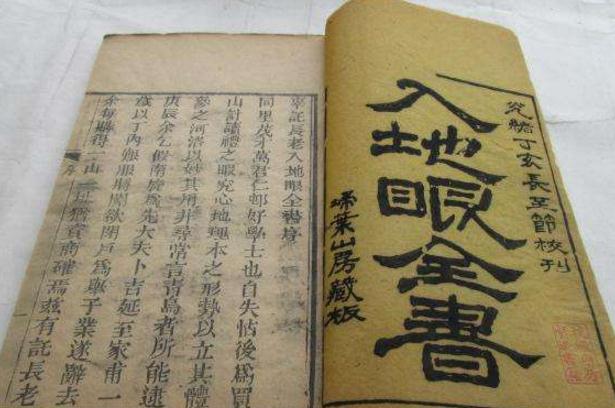 光緒丁亥長至節校刊
入地眼全書
埽葉山房藏板
辜託長老入地眼全書序
同里茂才萬君仁邨好學士也自失怙後爲買
山計讀禮之暇究心地理本之形勢以立其體
參之河洛以妙其用非尋常言青烏者所能逮
庚辰余乞假南旋爲先大夫卜吉延至家甫一
歲以丁內艱服將闋欲閉戶爲舉子業遂辭去
余每購得一山一壠猶賫商確焉茲有託長老
序